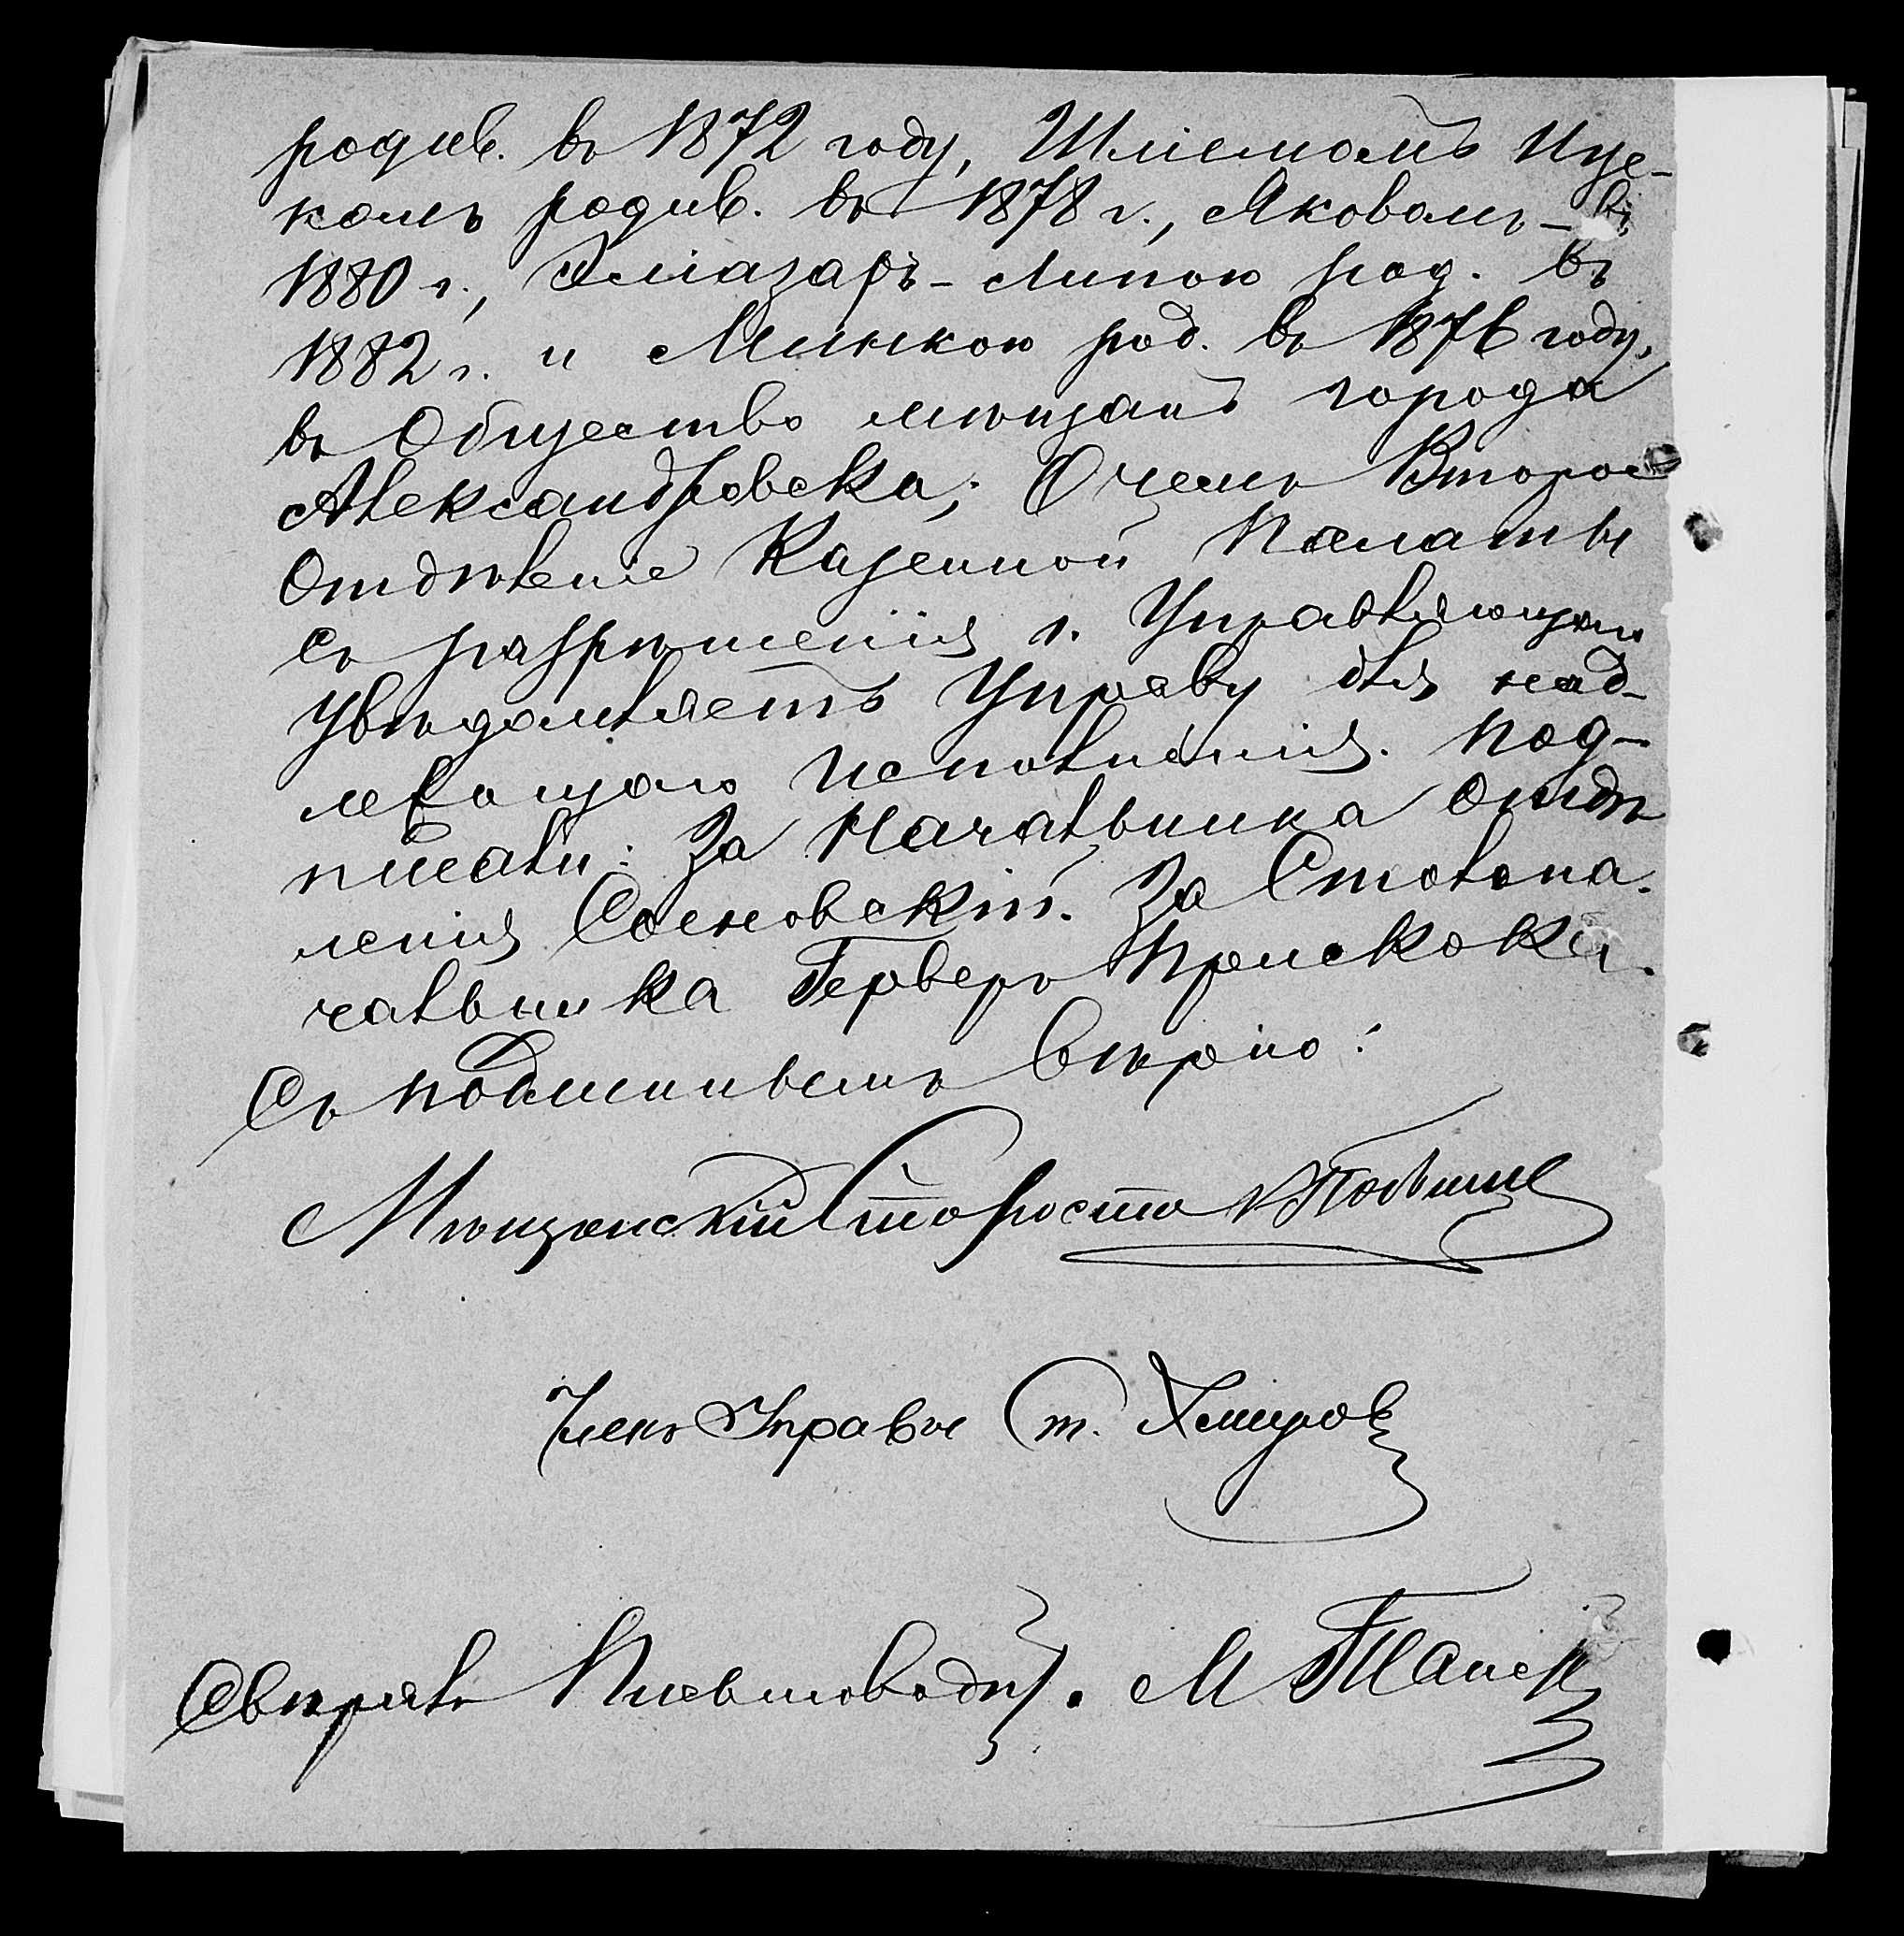 родив. въ 1872 году, Шлемомъ Ице-
комъ родив. въ 1878 г., Яковомъ - въ
1880 г., Элиазаръ-Липою род. въ
1882 г. и Минкою род. въ 1876 году,
въ Общество мѣщанъ города
Александровска; О чемъ Второе
Отдѣленіе Казенной Палаты
съ разрѣшенія г. Управляющаго
увѣдомляетъ Управу для над-
лежащаго исполненія. Под-
писали: За Начальника Отдѣ
ленія Сосновскій. За Столона-
чальника Герберъ Проскока.
Съ подлиннымъ вѣрно:
Мѣщанскій Староста
Членъ Управы Ст.
Свѣрялъ Письмоводи. М